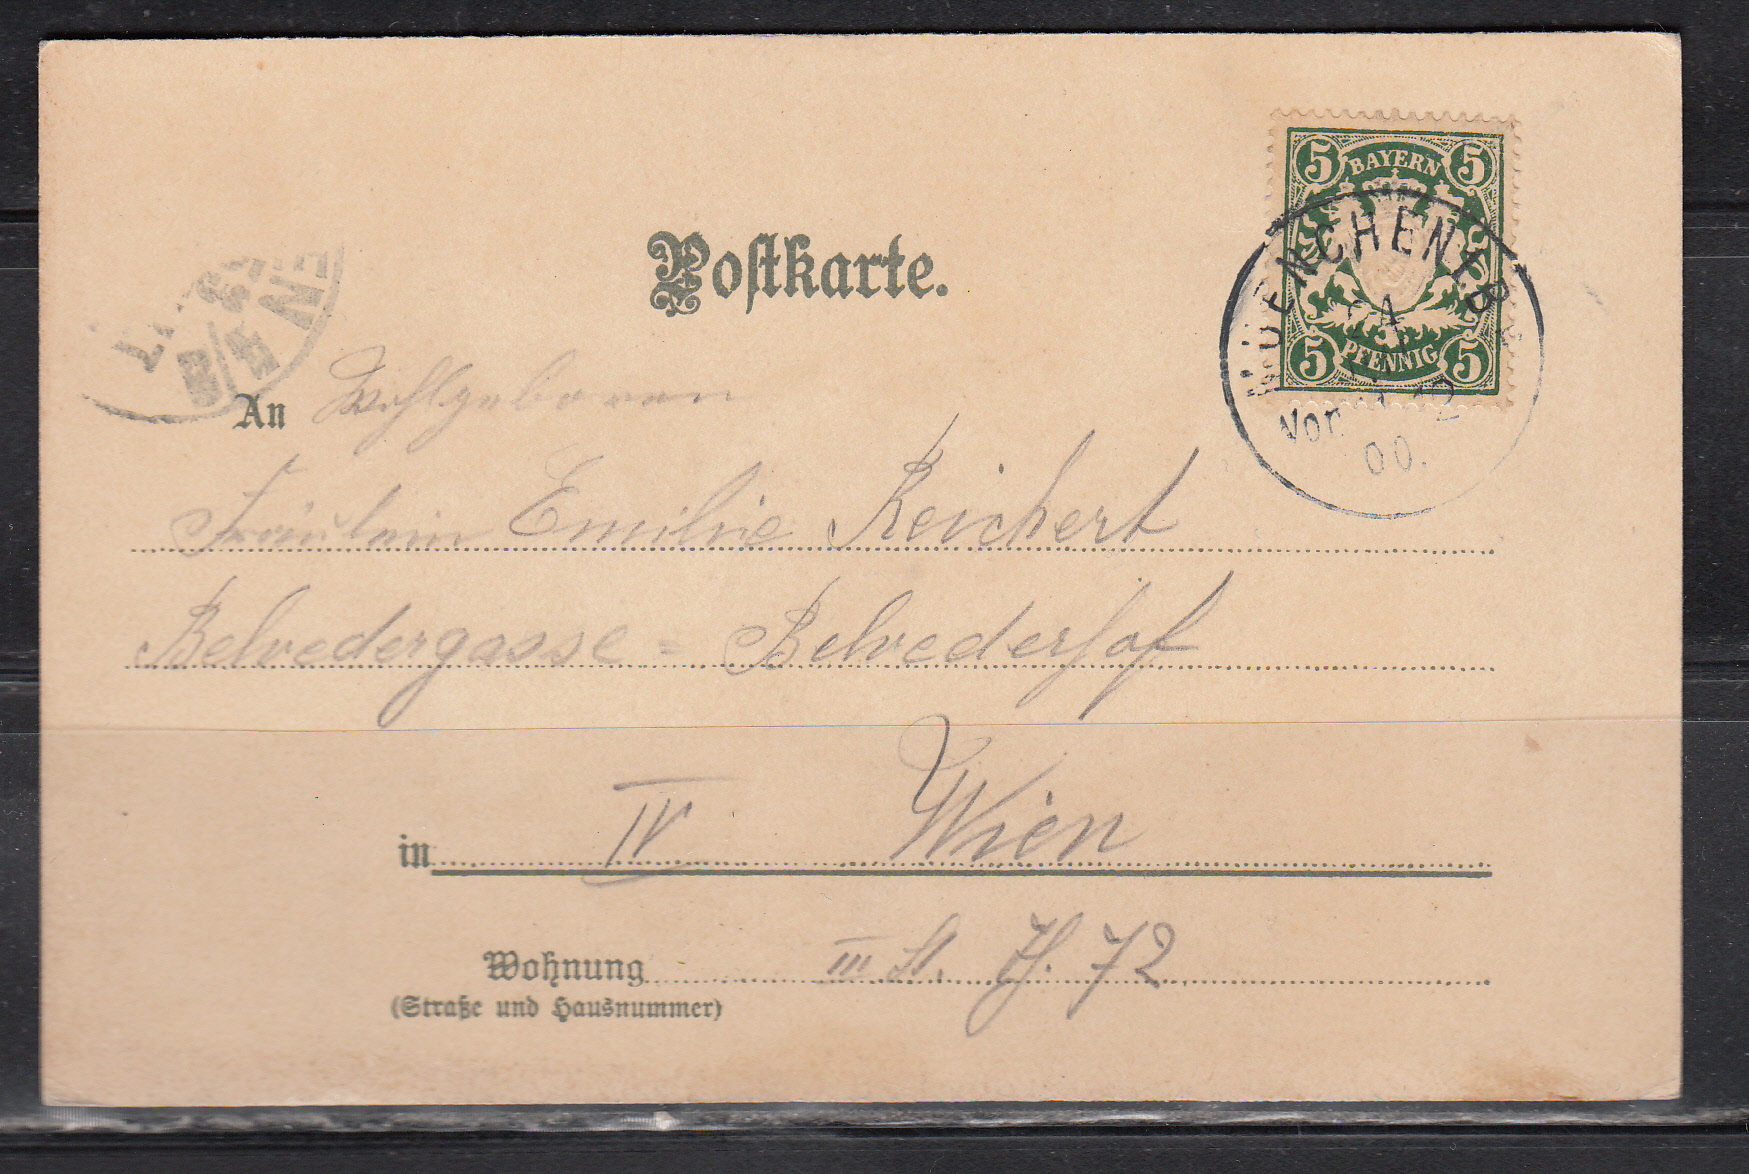 5 BAYERN 5
5 PFENNIG 5
MÜENCHEN I.B.
Vor.
00.
Postkarte.
An Wohlgeboren
Fräulein Emilie Reichert
Belvedergasse = Belvederhof
in IV Wien
Wohnung III St. Th. 72
(Straße und Hausnummer)